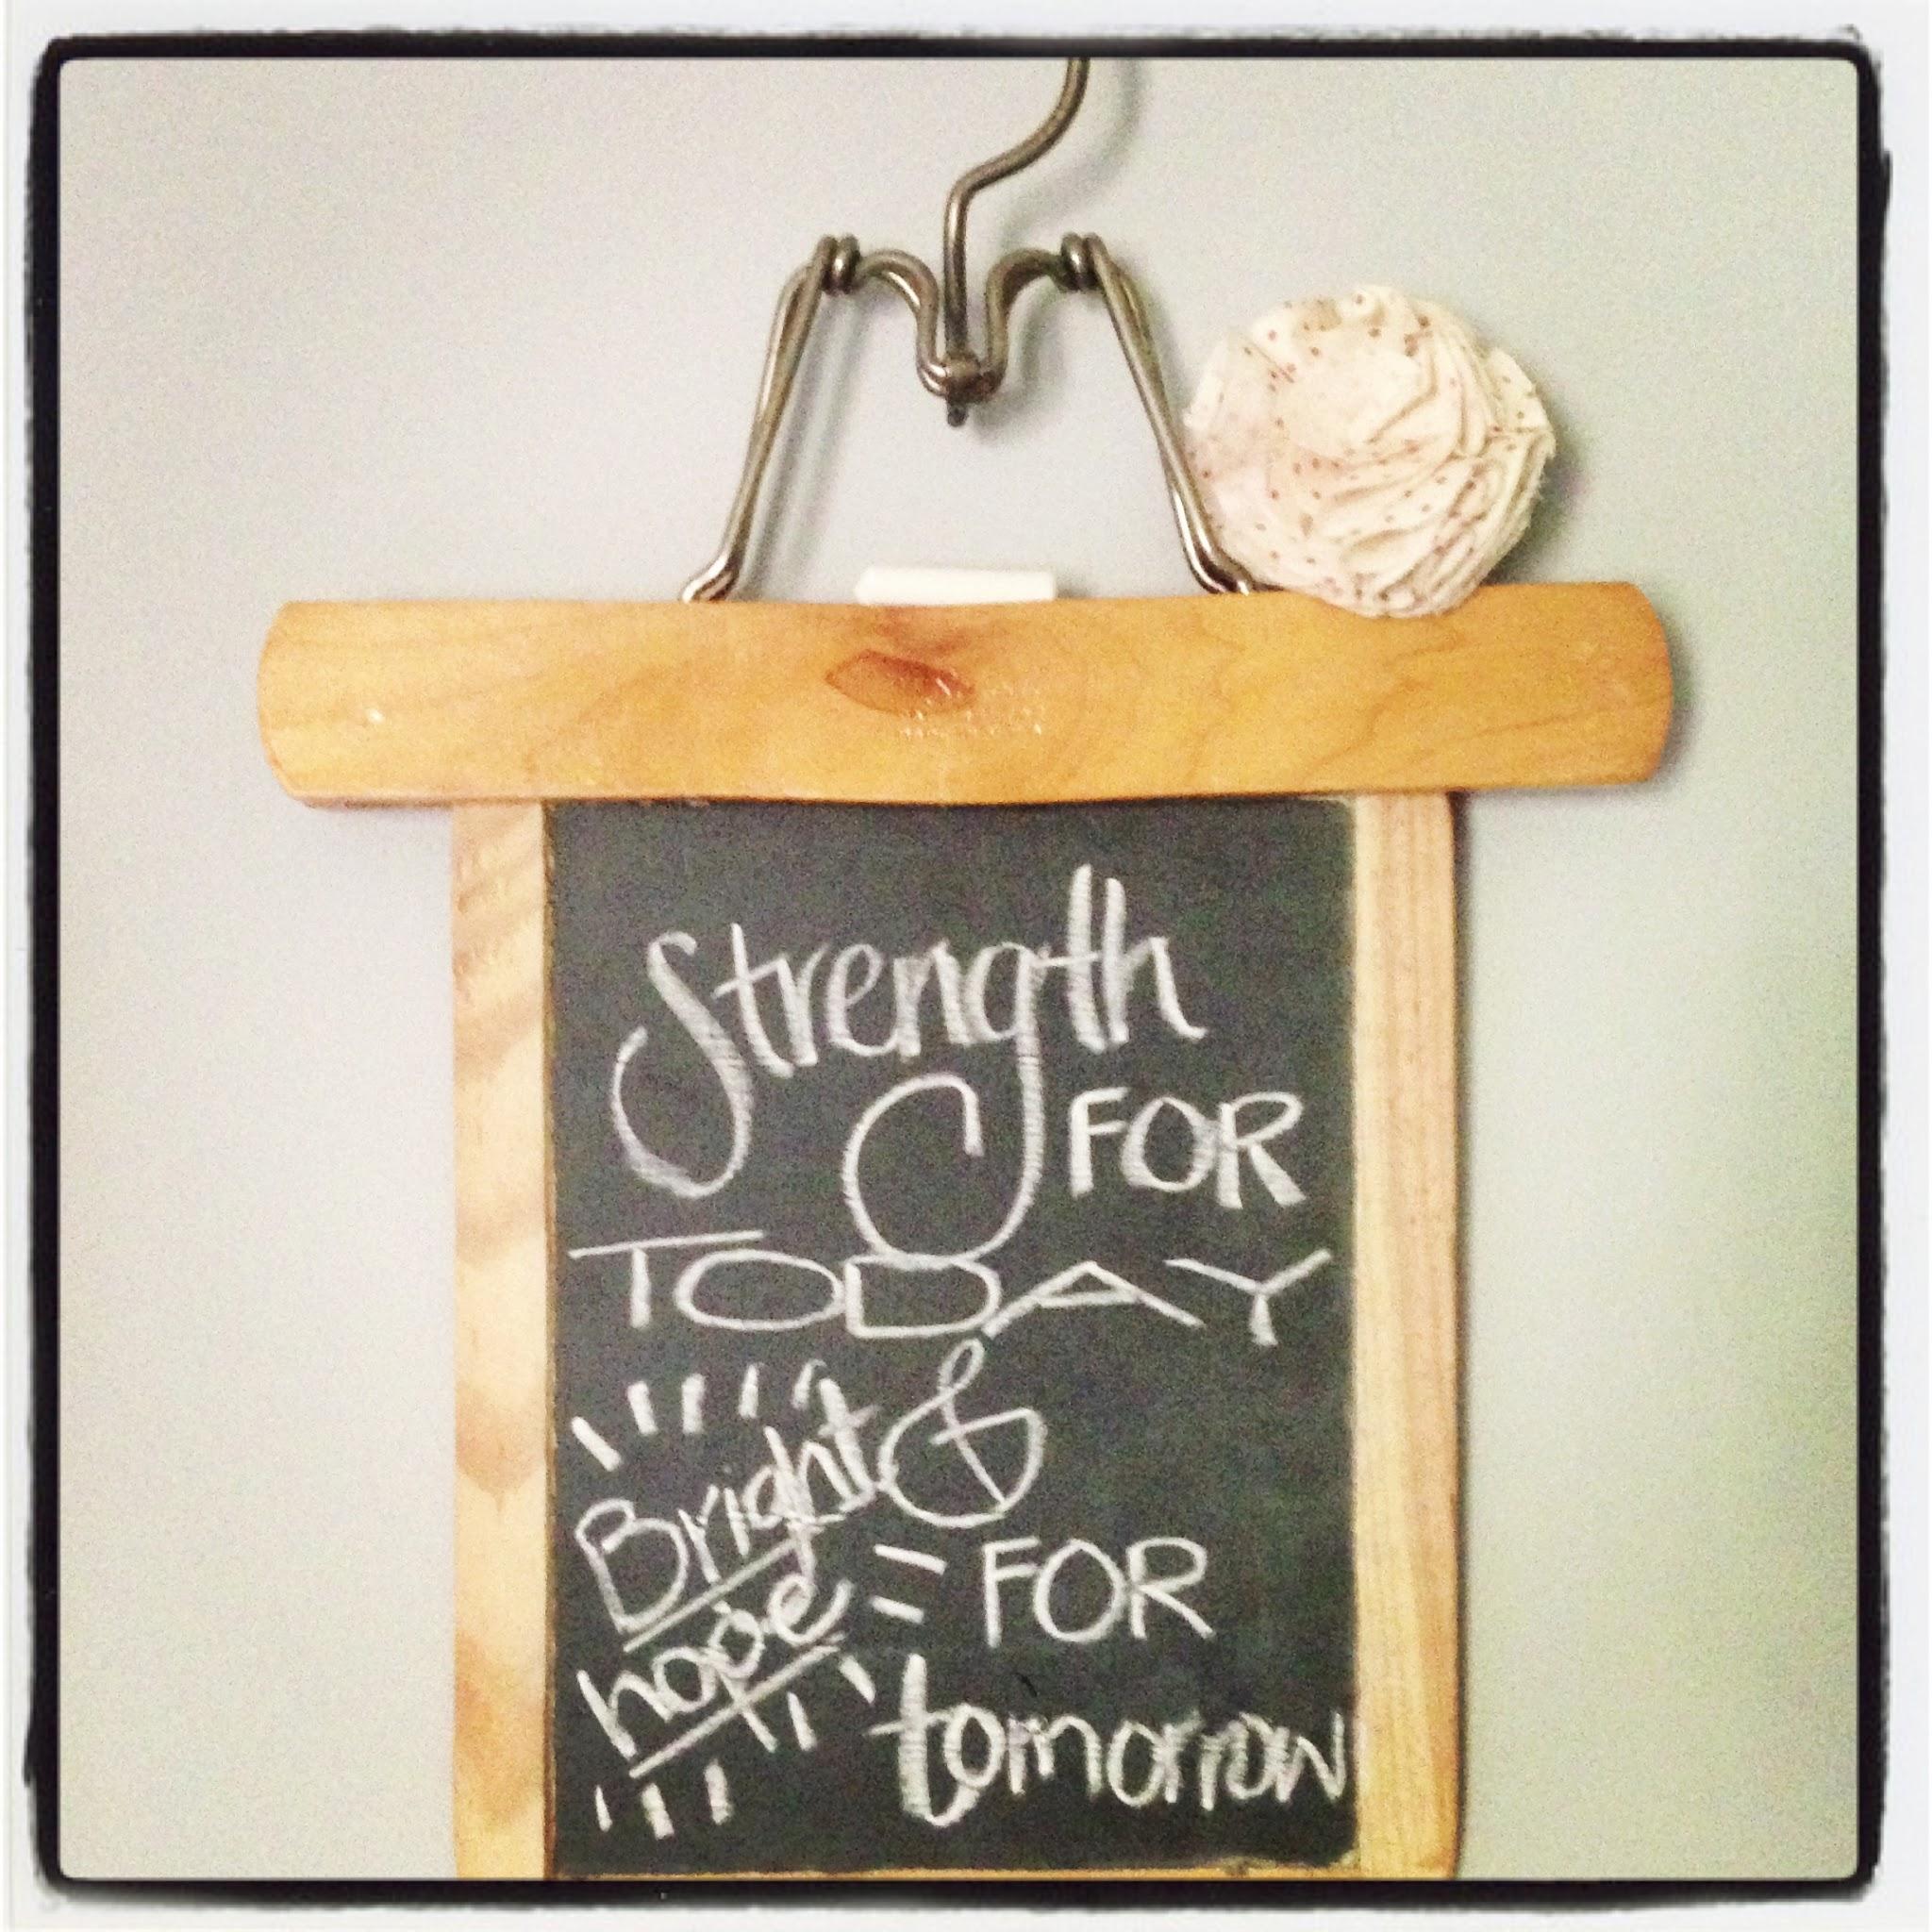 Strength
FOR
TODAY
&
Bright
hope
FOR
tomorrow